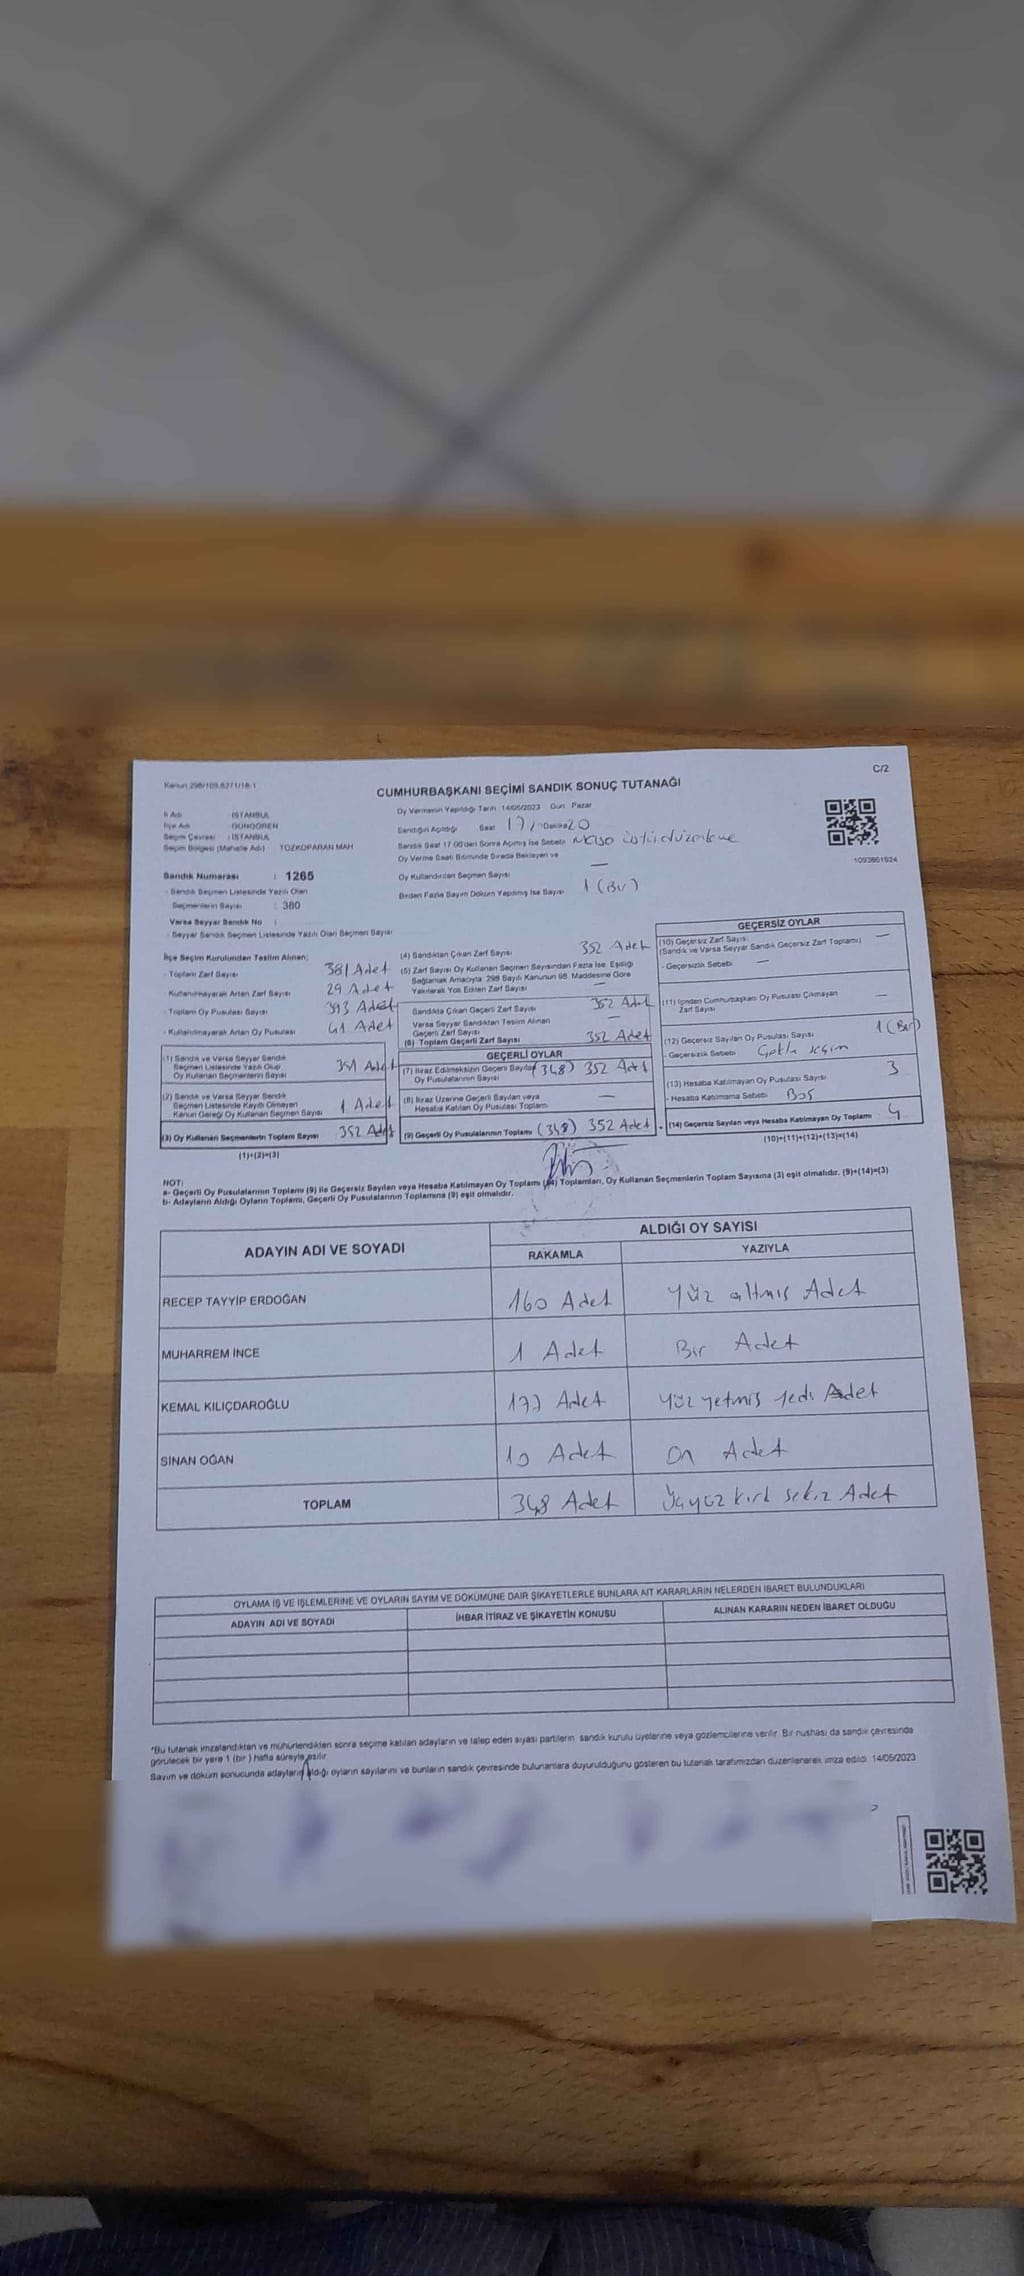 Kanun 298/105,6271/16-1
C/2
CUMHURBAŞKANI SEÇİMİ SANDIK SONUÇ TUTANAĞI
İl Adı : İSTANBUL
İlçe Adı : GÜNGÖREN
Seçim Çevresi : İSTANBUL
Seçim Bölgesi (Mahalle Adı) : TOZKOPARAN MAH
Sandık Numarası : 1265
- Sandık Seçmen Listesinde Yazılı Olan
Seçmenlerin Sayısı : 380
Varsa Seyyar Sandık No :
- Seyyar Sandık Seçmen Listesinde Yazılı Olan Seçmen Sayısı
Oy Vermenin Yapıldığı Tarih : 14/05/2023 Gün : Pazar
Sandığın Açıldığı Saat 17 Dakika 20
Sandık Saat 17.00'den Sonra Açılmış İse Sebebi Masa üstü düzenleme
Oy Verme Saati Bitiminde Sırada Bekleyen ve
Oy Kullandırılan Seçmen Sayısı —
Birden Fazla Sayım Döküm Yapılmış İse Sayısı 1 (Bir)
1093861924
İlçe Seçim Kurulundan Teslim Alınan;
- Toplam Zarf Sayısı 381 Adet
- Kullanılmayarak Artan Zarf Sayısı 29 Adet
- Toplam Oy Pusulası Sayısı 393 Adet
- Kullanılmayarak Artan Oy Pusulası 41 Adet
(1) Sandık ve Varsa Seyyar Sandık
Seçmen Listesinde Yazılı Olup
Oy Kullanan Seçmenlerin Sayısı 351 Adet
(2) Sandık ve Varsa Seyyar Sandık
Seçmen Listesinde Kayıtlı Olmayan
Kanun Gereği Oy Kullanan Seçmen Sayısı 1 Adet
(3) Oy Kullanan Seçmenlerin Toplam Sayısı 352 Adet
(1)+(2)=(3)
(4) Sandıktan Çıkan Zarf Sayısı 352 Adet
(5) Zarf Sayısı Oy Kullanan Seçmen Sayısından Fazla İse, Eşitliği
Sağlamak Amacıyla, 298 Sayılı Kanunun 98. Maddesine Göre
Yakılarak Yok Edilen Zarf Sayısı —
Sandıkta Çıkan Geçerli Zarf Sayısı 352 Adet
Varsa Seyyar Sandıktan Teslim Alınan
Geçerli Zarf Sayısı —
(6) Toplam Geçerli Zarf Sayısı 352 Adet
GEÇERLİ OYLAR
(7) İtiraz Edilmeksizin Geçerli Sayılan
Oy Pusulalarının Sayısı (348) 352 Adet
(8) İtiraz Üzerine Geçerli Sayılan veya
Hesaba Katılan Oy Pusulası Toplamı —
(9) Geçerli Oy Pusulalarının Toplamı (348) 352 Adet
GEÇERSİZ OYLAR
(10) Geçersiz Zarf Sayısı
(Sandık ve Varsa Seyyar Sandık Geçersiz Zarf Toplamı) —
- Geçersizlik Sebebi —
(11) İçinden Cumhurbaşkanı Oy Pusulası Çıkmayan
Zarf Sayısı —
(12) Geçersiz Sayılan Oy Pusulası Sayısı 1 (Bir)
- Geçersizlik Sebebi Çoklu seçim
(13) Hesaba Katılmayan Oy Pusulası Sayısı 3
- Hesaba Katılmama Sebebi Boş
(14) Geçersiz Sayılan veya Hesaba Katılmayan Oy Toplamı 4
(10)+(11)+(12)+(13)=(14)
NOT:
a- Geçerli Oy Pusulalarının Toplamı (9) ile Geçersiz Sayılan veya Hesaba Katılmayan Oy Toplamı (14) Toplamları, Oy Kullanan Seçmenlerin Toplam Sayısına (3) eşit olmalıdır. (9)+(14)=(3)
b- Adayların Aldığı Oyların Toplamı, Geçerli Oy Pusulalarının Toplamına (9) eşit olmalıdır.
ADAYIN ADI VE SOYADI
ALDIĞI OY SAYISI
RAKAMLA YAZIYLA
RECEP TAYYİP ERDOĞAN 160 Adet Yüz altmış Adet
MUHARREM İNCE 1 Adet Bir Adet
KEMAL KILIÇDAROĞLU 177 Adet Yüz yetmiş yedi Adet
SİNAN OĞAN 10 Adet On Adet
TOPLAM 348 Adet Üçyüz kırk sekiz Adet
OYLAMA İŞ VE İŞLEMLERİNE VE OYLARIN SAYIM VE DÖKÜMÜNE DAİR ŞİKAYETLERLE BUNLARA AİT KARARLARIN NELERDEN İBARET BULUNDUKLARI
ADAYIN ADI VE SOYADI İHBAR İTİRAZ VE ŞİKAYETİN KONUSU ALINAN KARARIN NEDEN İBARET OLDUĞU
*Bu tutanak imzalandıktan ve mühürlendikten sonra seçime katılan adayların ve talep eden siyasi partilerin sandık kurulu üyelerine veya gözlemcilerine verilir. Bir nüshası da sandık çevresinde
görülecek bir yere 1 (bir) hafta süreyle asılır.
Sayım ve döküm sonucunda adayların aldığı oyların sayılarını ve bunların sandık çevresinde bulunanlara duyurulduğunu gösteren bu tutanak tarafımızdan düzenlenerek imza edildi. 14/05/2023